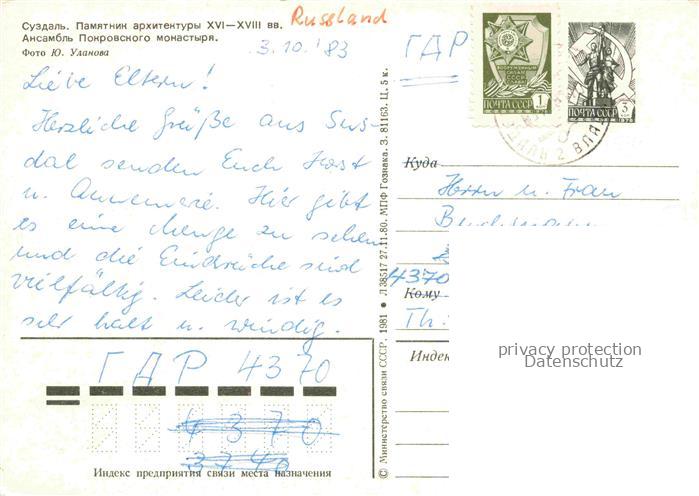 Суздаль. Памятник архитектуры XVI—XVIII вв.
Ансамбль Покровского монастыря.
Фото Ю. Уланова
Russland
3.10.'83
ГДР
ВООРУЖЕННЫЕ СИЛЫ СССР
ПОЧТА СССР 1
ПОЧТА СССР 3
1976
Liebe Eltern!
Herzliche Grüße aus Sus-
dal senden Euch Horst
u. Annemarie. Hier gibt
es eine Menge zu sehen
und die Eindrücke sind
vielfältig. Leider ist es
sehr kalt u. windig.
Куда
Herrn u. Frau
4370
Кому
Th.
Индек
privacy protection
Datenschutz
ГДР 4370
4370
3740
Индекс предприятия связи места назначения
© Министерство связи СССР, 1981 ● Л 38517 27.11.80. МПФ Гознака. З. 81163. Ц. 5 к.